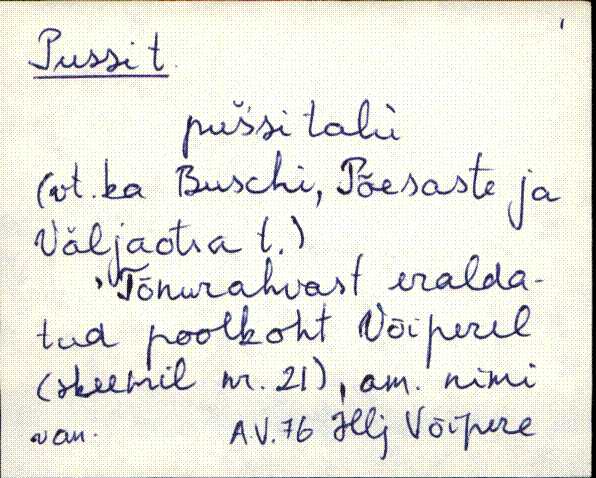 Pussi t.
pušši talù
(vt. ka Buschi, Põesaste ja
Väljaotsa t.)
Tõnurahvast eralda-
tud poolkoht Võiperel
(skeemil nr. 21), am. nimi
van. A.V. 76 Hlj Võipere